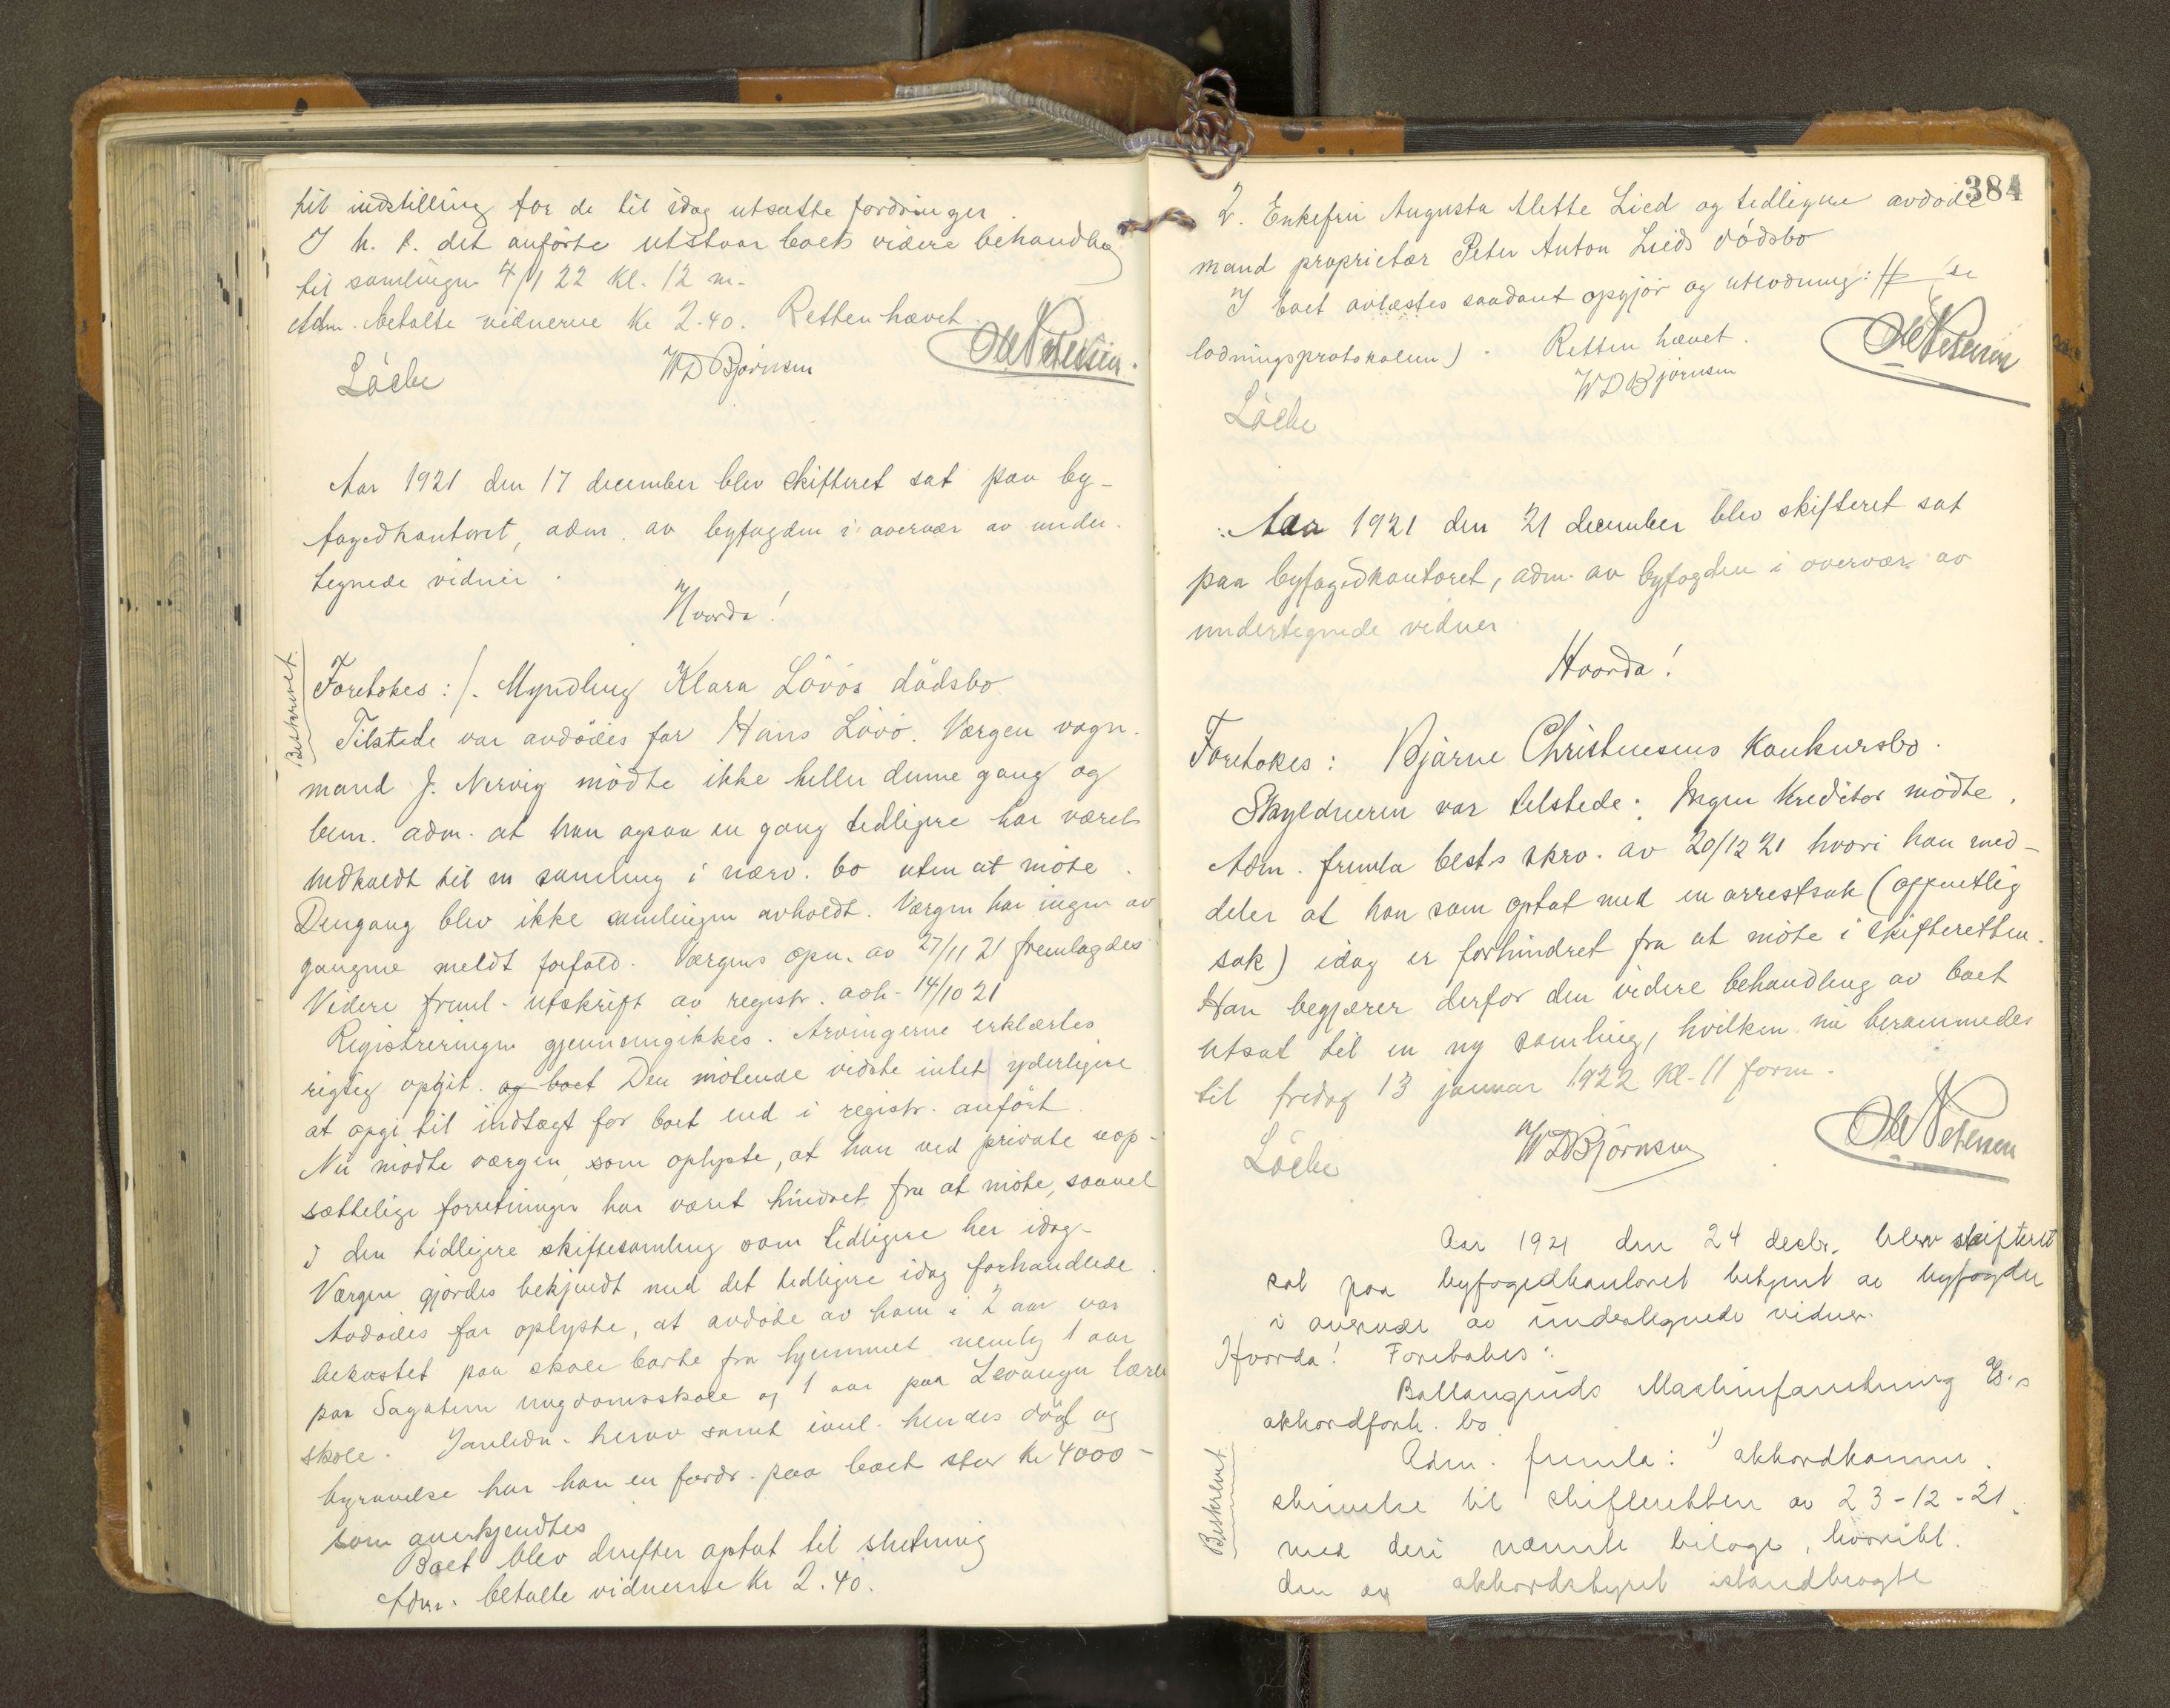 til indstilling for de til idag utsatte fordringer.
I h. t. det anförte utstaar boets videre behandling
til samlingen 4/1 22 kl. 12 m.
Adm. betalte vidnerne Kr 2.40. Retten hævet.
Löche WDBjörnsen Ole Petersen.
Aar 1921 den 17 december blev skifteret sat paa by-
fogedkontoret, adm. av byfogden i overvær av under-
tegnede vidner.
Hvorda!
Beskrevet.
Foretokes: 1. Myndling Klara Lövös dödsbo
Tilstede var avdödes far Hans Lövö. Værgen vogn-
mand J. Nervig mödte ikke heller denne gang og
bem. adm. at han ogsaa en gang tidligere har været
indkaldt til en samling i nærv. bo uten at möte.
Dengang blev ikke samlingen avholdt. Værgen har ingen av
gangene meldt forfald. Værgens opn. av 27/11 21 fremlagdes
Videre freml. utskrift av registr. avh. 14/10 21
Registreringen gjennemgikkes. Arvingerne erklærtes
rigtig opgit. og boet Den mötende vidste intet yderligere
at opgi til indtægt for boet end i registr. anfört.
Nu mödte værgen, som oplyste, at han ved private uop-
sættelige forretninger har været hindret fra at möte, saavel
i den tidligere skiftesamling som tidligere her idag.
Værgen gjördes bekjendt med det tidligere idag forhandlede.
Avdödes far oplyste, at avdöde av ham i 2 aar var
bekostet paa skole borte fra hjemmet nemlig 1 aar
paa Sagatun ungdomsskole og 1 aar paa Levanger lærer
skole. I anledn. herav samt ivul. hendes död og
begravelse har han en fordr. paa boet stor kr 4000-
som anerkjendtes
Boet blev derefter optat til slutning
Adm. betalte vidnerne Kr 2.40.
384
2. Enkefru Augusta Alette Lied og tidligere avdöde
mand proprietær Peter Anton Lieds dödsbo
I boet avlæstes saadant opgjör og utlodning: (se
lodningsprotokollen). Retten hævet.
Löche WDBjörnsen Ole Petersen
Aar 1921 den 21 december blev skifteret sat
paa byfogedkontoret, adm. av byfogden i overvær av
undertegnede vidner
Hvorda!
Foretokes: Bjarne Christensens konkursbo.
Skyldneren var tilstede. Ingen kreditor mödte.
Adm. fremla best.s skrv. av 20/12 21 hvori han med-
deler at han som optat med en arrestsak (offentlig
sak) idag er forhindret fra at möte i skifteretten.
Han begjærer derfor den videre behandling av boet
utsat til en ny samling, hvilken nu berammedes
til fredag 13 januar 1922 kl. 11 form.
Löche WDBjörnsen Ole Petersen
Aar 1921 den 24 decbr. blev skifteret
sat paa byfogedkontoret betjent av byfogden
i overvær av undertegnede vidner.
Hvorda! Foretokes:
Ballangruds Maskinforretning &s.s
akkordforh. bo
Beskrevet
Adm. fremla: 1) akkordkomm.
skrivelse til skifteretten av 23-12-21.
med deri nævnte bilage, hvoribl.
den av akkordstyret istandbragte